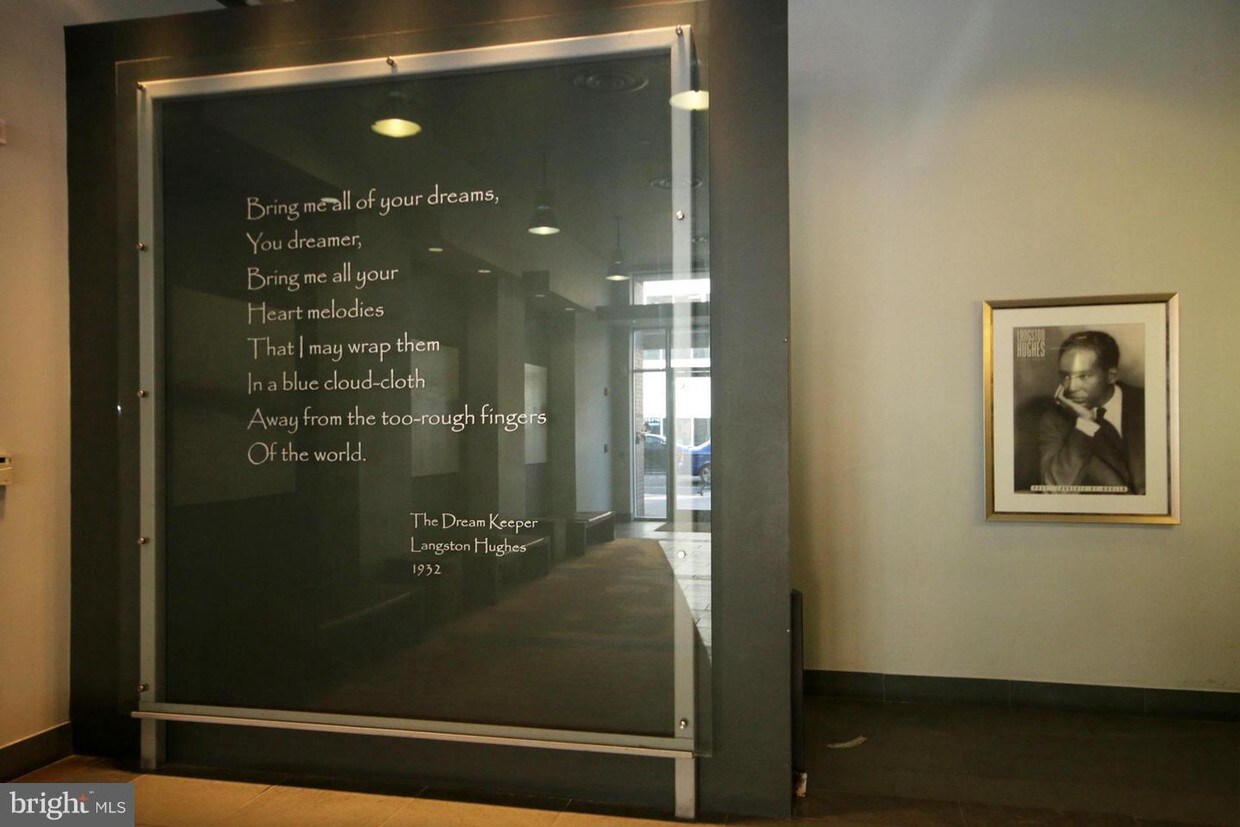 Bring me all of your dreams,
You dreamer,
Bring me all your
Heart melodies
That I may wrap them
In a blue cloud-cloth
Away from the too-rough fingers
Of the world.
The Dream Keeper
Langston Hughes
1932
LANGSTON
HUGHES
bright MLS